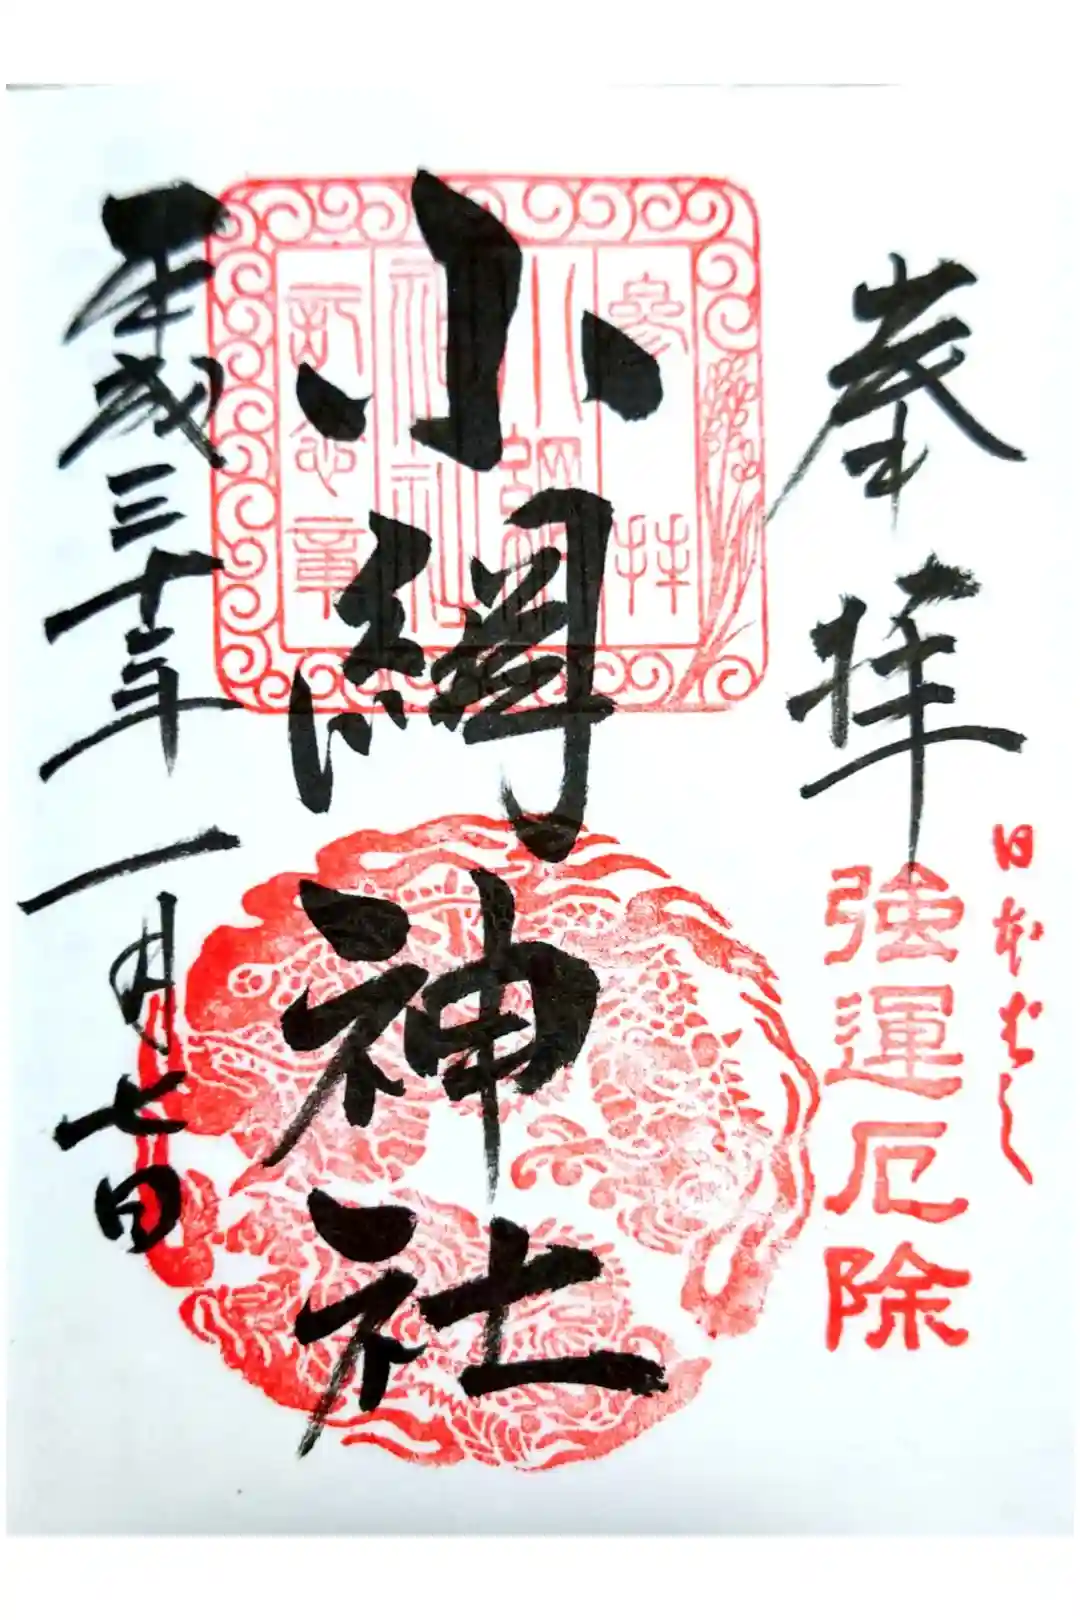 奉拝
日本ばし
強運厄除
参拝
小網
神社
記念章
小網神社
平成三十年一月七日